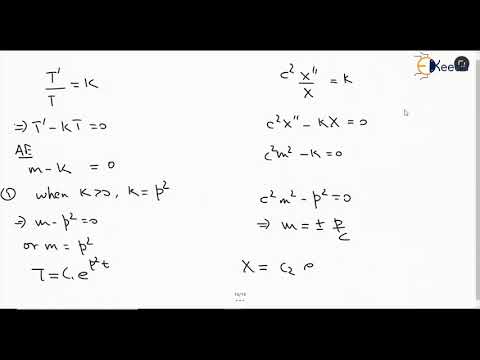 T'/T = k
⇒ T' - kT = 0
AE
m - k = 0
① when k>0, k = p²
⇒ m - p² = 0
or m = p²
T = C₁e^{p²t}
c² X''/X = k
c²X'' - kX = 0
c²m² - k = 0
c²m² - p² = 0
⇒ m = ± p/c
X = c₂ e